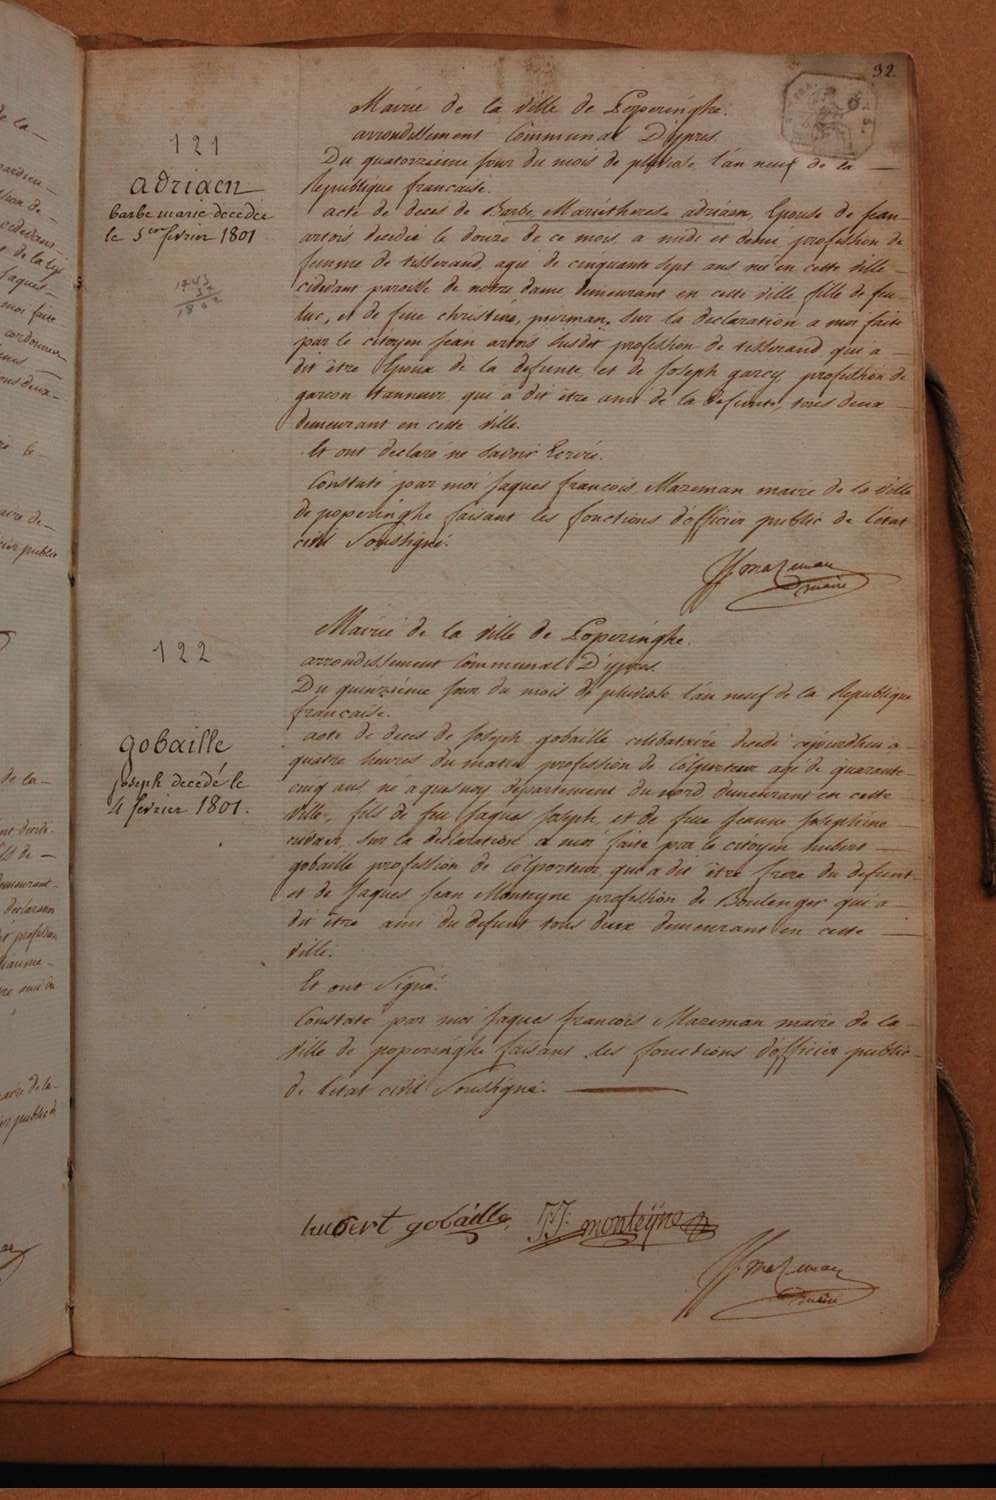 32
121
adriaen
barbe marie decedee
le 1er fevrier 1801
Mairie de la ville de Poperinghe.
arrondissement Communal D'ypres.
Du quatorzième jour du mois de pluviose l'an neuf de la
Republique francaise.
acte de deces de Barbe Mariethérese adriaen, Epouse de jean
artois decedée le douze de ce mois, a midi et demi, profession de
femme de tisserand, agée de cinquante sept ans née en cette ville
cidevant paroisse de notre dame, demeurant en cette ville fille de feu
luc, et de feue christine, sur la declaration a moi faite
par le citoyen jean artois susdit profession de tisserand qui a
dit être Epoux de la defunte, et de joseph garcy profession de
garcon tanneur, qui a dit être ami de la defunte, tous deux
demeurant en cette ville.
Et ont declaré ne savoir Ecrire.
Constaté par moi jaques francois Mazeman maire de la ville
de poperinghe faisant les fonctions d'officier public de l'etat
civil Soussigné.
JJ. mazeman
maire
122
gobaille
joseph decedé le
4 fevrier 1801.
Mairie de la ville de Poperinghe.
arrondissement Communal D'ypres.
Du quinzième jour du mois de pluviose l'an neuf de la Republique
francaise.
acte de deces de Joseph gobaille celibataire decedé aujourdhui a
quatre heures du matin profession de Colporteur agé de quarante
cinq ans né a quesnois departement du nord demeurant en cette
ville, fils de feu jaques joseph, et de feue jeanne josephine
sur la declaration a moi faite par le citoyen hubert
gobaille profession de Colporteur qui a dit être frere du defunt
et de jaques jean Monteyne profession de Boulenger qui a
dit être ami du defunt tous deux demeurant en cette
ville.
Et ont Signé.
Constaté par moi jaques francois Mazeman maire de la
ville de poperinghe faisant les fonctions d'officier public
de l'etat civil Soussigné.
hubert gobaille J.J. monteijne
JJ. mazeman
maire